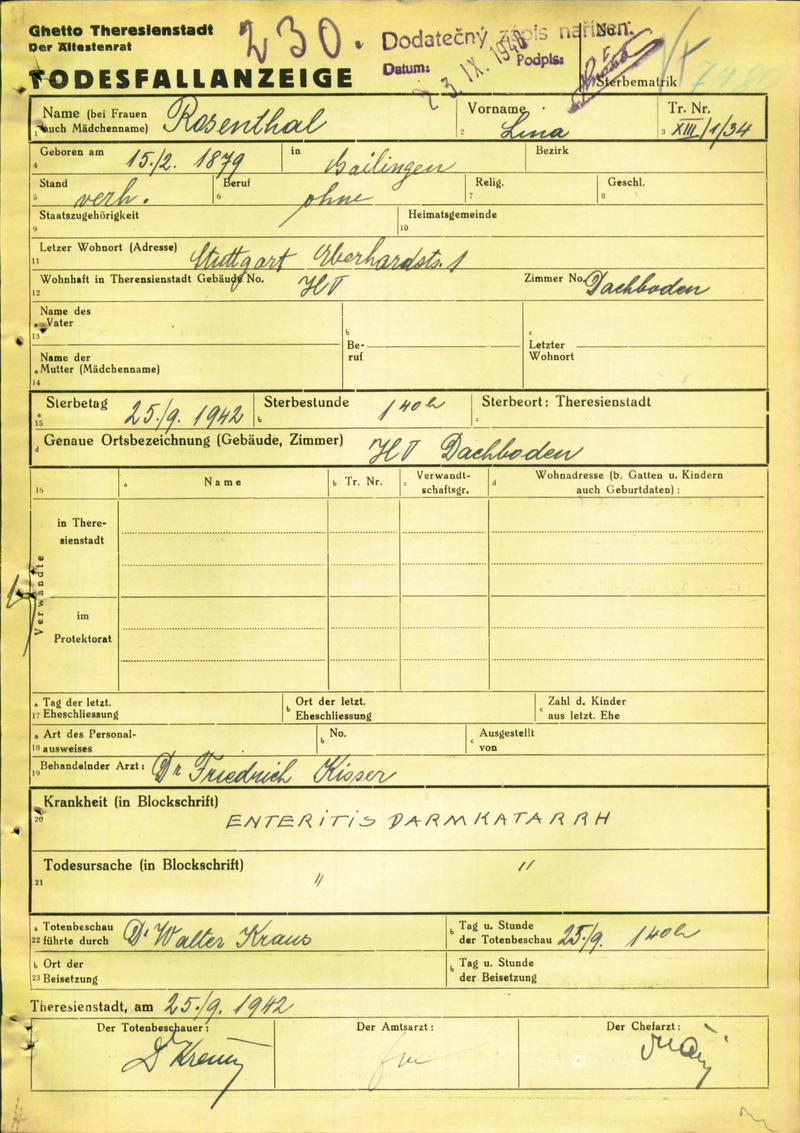 Ghetto Theresienstadt
Der Ältestenrat
230.
Dodatečný zápis nařízen.
Datum: 23.IX.1948 Podpis:
TODESFALLANZEIGE
Sterbematrik
Name (bei Frauen auch Mädchenname) Rosenthal
Vorname Lina
2
Tr. Nr.
3 XIII/1/34
Geboren am 15./2. 1879 in Gailingen Bezirk
4
Stand verh. Beruf ohne Relig. Geschl.
5 6 7 8
Staatszugehörigkeit Heimatsgemeinde
9 10
Letzer Wohnort (Adresse) Stuttgart Eberhardstr. 1
11
Wohnhaft in Therensienstadt Gebäude No. HV Zimmer No. Dachboden
12
Name des
a Vater
13
Name der
a Mutter (Mädchenname)
14
b
Be-
ruf
c
Letzter
Wohnort
Sterbetag 25./9. 1942 Sterbestunde 1 40 h Sterbeort: Theresienstadt
a 15 b c
d Genaue Ortsbezeichnung (Gebäude, Zimmer) HV Dachboden
16 a Name b Tr. Nr. c Verwandt-
schaftsgr. d Wohnadresse (b. Gatten u. Kindern
auch Geburtdaten) :
Verwandte
in There-
sienstadt
im
Protektorat
a Tag der letzt.
17 Eheschliessung
b Ort der letzt.
Eheschliessung
c Zahl d. Kinder
aus letzt. Ehe
a Art des Personal-
18 ausweises
b No.
c Ausgestellt
von
19 Behandelnder Arzt: Dr Friedrich Kisser
Krankheit (in Blockschrift)
20
ENTERITIS DARMKATARRH
Todesursache (in Blockschrift) " "
21
a Totenbeschau
22 führte durch Dr Walter Kraus
b Tag u. Stunde
der Totenbeschau 25./9. 1 40 h
b Ort der
23 Beisetzung
b Tag u. Stunde
der Beisetzung
Theresienstadt, am 25./9. 1942
Der Totenbeschauer: Der Amtsarzt: Der Chefarzt: